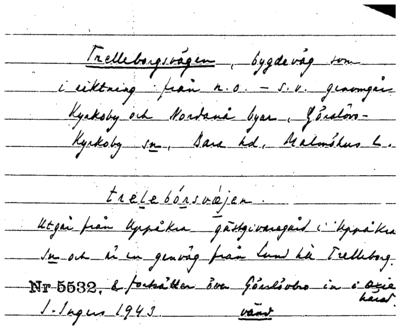 Trelleborgsvägen, bygdeväg som
i riktning från n.o. – s.v. genomgår
Kyrkoby och Nordanå byar, Görslövs-
Kyrkoby sn, Bara hd, Malmöhus l.
trelebórsvæjen.
Utgår från Uppåkra gästgivaregård i Uppåkra
sn och är en genväg från Lund till Trelleborg.
Nr 5532. & fortsätter över Görslövbro in i Oxie
härad.
J. Ingers 1943. vänd